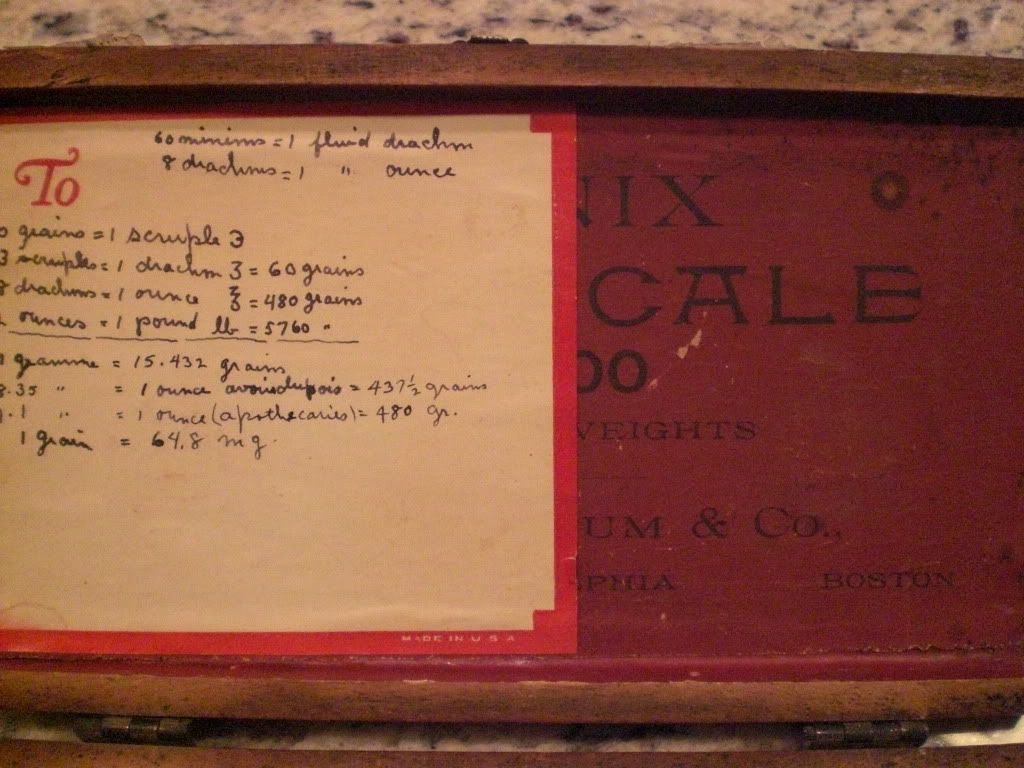 60 minims = 1 fluid drachm
8 drachms = 1 " ounce
To
0 grains = 1 scruple ℈
3 scruples = 1 drachm ʒ = 60 grains
8 drachms = 1 ounce ℥ = 480 grains
ounces = 1 pound lb = 5760 "
1 gramme = 15.432 grains
8.35 " = 1 ounce avoirdupois = 437½ grains
.1 " = 1 ounce (apothecaries) = 480 gr.
1 grain = 64.8 mg.
MADE IN U S A
NIX
SCALE
00
WEIGHTS
UM & Co.,
LPHIA BOSTON